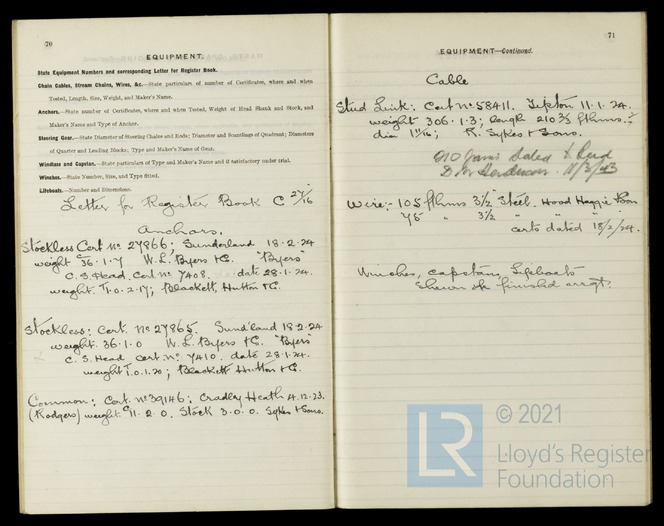 70
EQUIPMENT.
State Equipment Numbers and corresponding Letter for Register Book.
Chain Cables, Stream Chains, Wires, &c.—State particulars of number of Certificates, where and when
Tested, Length, Size, Weight, and Maker's Name.
Anchors.—State number of Certificates, where and when Tested, Weight of Head Shank and Stock, and
Maker's Name and Type of Anchor.
Steering Gear.—State Diameter of Steering Chains and Rods; Diameter and Scantlings of Quadrant; Diameters
of Quarter and Leading Blocks; Type and Maker's Name of Gear.
Windlass and Capstan.—State particulars of Type and Maker's Name and if satisfactory under trial.
Winches.—State Number, Size, and Type fitted.
Lifeboats.—Number and Dimensions.
Letter for Register Book C 27/16
Anchors.
Stockless Cert No 27866; Sunderland 18.2.24
weight 36.1.7 W.L. Byers & C. "Byers"
C.S. Head. Cert. No 7408. date 28.1.24.
weight. T1.0.2.17; Blackett, Hutton & C.
Stockless: Cert. No 27865. Sund'land 18.2.24
weight: 36.1.0 W.L. Byers & C. "Byers"
C.S. Head cert. No 7410. date 28.1.24.
weight T1.0.1.20; Blackett Hutton & C.
Common; Cert. No 39146; Cradley Heath 4.12.23.
(Rodgers) weight. C11.2.0. Stock 3.0.0. Sykes & Sons.
71
EQUIPMENT—Continued.
Cable
Stud Link: Cert No 58411. Tipton 11.1.24.
weight 306.1.3; length 210 fthms.
dia 1 11/16; R. Sykes & Sons.
D. Henderson. 11/3/43
Wire:- 105 fthms 3½" Steel. Hood Haggie & Son
75 " 3½ " " " "
certs dated 18/2/24.
Winches, capstan, Lifeboats
Shewn on finished arrgt.
LR
© 2021
Lloyd's Register
Foundation